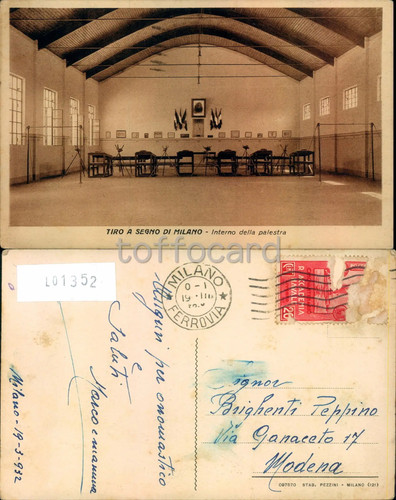 TIRO A SEGNO DI MILANO - Interno della palestra
toffocard
L01352
MILANO
0-1
19·III
FERROVIA
20
Auguri per onomastico
Saluti
Marco e mamma
Milano - 19-3-932
Signor
Brighenti Peppino
Via Ganaceto 17
Modena
STAB. PEZZINI - MILANO (131)